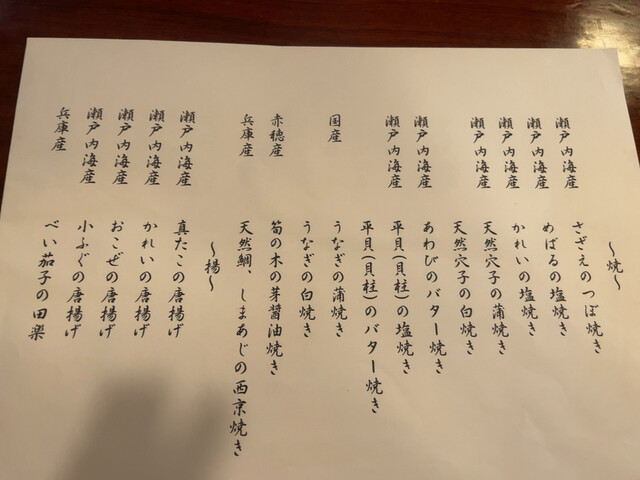 ～焼～
瀬戸内海産 さざえのつぼ焼き
瀬戸内海産 めばるの塩焼き
瀬戸内海産 かれいの塩焼き
瀬戸内海産 天然穴子の蒲焼き
天然穴子の白焼き
瀬戸内海産 あわびのバター焼き
瀬戸内海産 平貝(貝柱)の塩焼き
平貝(貝柱)のバター焼き
国産 うなぎの蒲焼き
うなぎの白焼き
赤穂産 筍の木の芽醤油焼き
兵庫産 天然鯛、しまあじの西京焼き
～揚～
瀬戸内海産 真たこの唐揚げ
瀬戸内海産 かれいの唐揚げ
瀬戸内海産 おこぜの唐揚げ
瀬戸内海産 小ふぐの唐揚げ
兵庫産 べい茄子の田楽